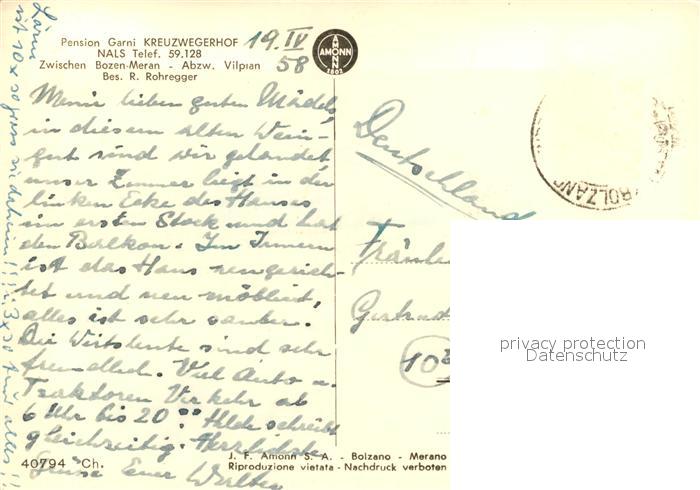 Pension Garni KREUZWEGERHOF
NALS Telef. 59.128
Zwischen Bozen-Meran - Abzw. Vilpian
Bes. R. Rohregger
19. IV
58
AMONN
AMONN
1802
Meine lieben guten Mädels,
in diesem alten Wein-
gut sind wir gelandet
unser Zimmer liegt in der
linken Ecke des Hauses
im ersten Stock und hat
den Balkon. Im Innern
ist das Haus neu gerich-
tet und neu möbliert,
alles ist sehr sauber.
Die Wirtsleute sind sehr
freundlich. Viel Auto u.
Traktoren Verkehr ab
6 Uhr bis 20 !! Hilde schreibt
gleichzeitig. Herzlichste
Grüße Euer Walter
Lärm
ist 10 x so gross wie daheim !!!! 3 x so
alles !!
Deutschland
Fräulei
Gertrud
BOLZANO
privacy protection
Datenschutz
40794 Ch.
J. F. Amonn S. A. - Bolzano - Merano
Riproduzione vietata - Nachdruck verboten